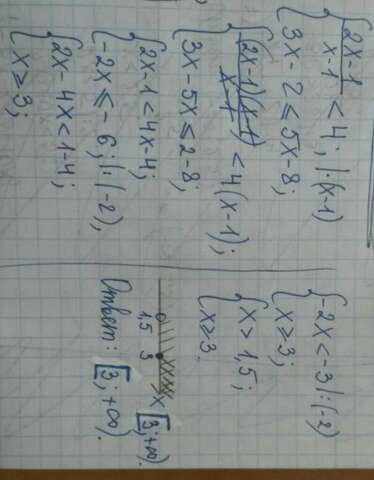 { (2x-1)/(x-1) < 4; | · (x-1)
3x - 2 ≤ 5x - 8;
{ (2x-1)(x-1)/(x-1) < 4(x-1);
3x - 5x ≤ 2 - 8;
{ 2x - 1 < 4x - 4;
-2x ≤ -6; | : (-2),
{ 2x - 4x < 1 - 4;
x ≥ 3;
{ -2x < -3 | : (-2)
x ≥ 3;
{ x > 1,5;
x ≥ 3.
1,5 3 x [3; +∞).
Ответ: [3; +∞).